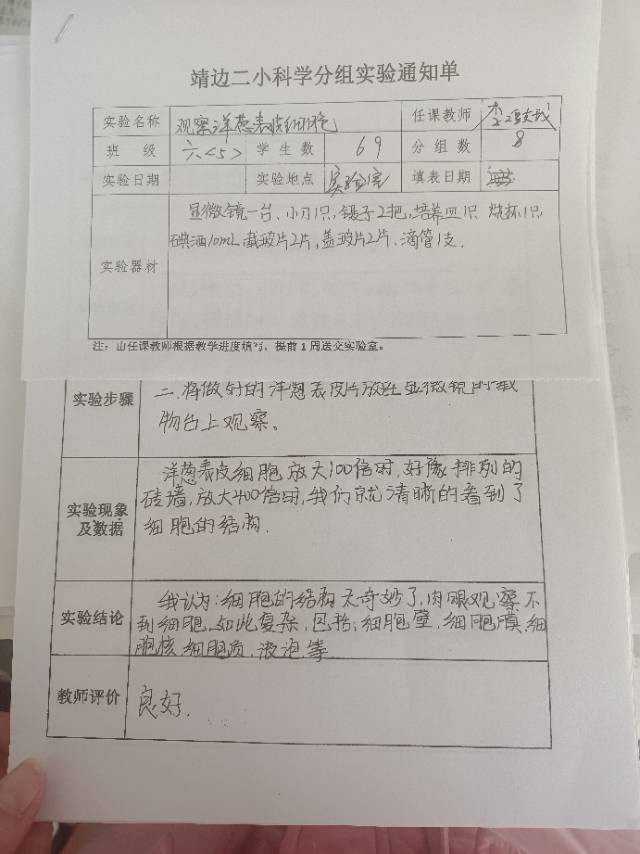 靖边二小科学分组实验通知单
实验名称 观察洋葱表皮细胞 任课教师
班 级 六<5> 学生数 69 分组数 8
实验日期 实验地点 实验室 填表日期
显微镜一台、小刀1只,镊子2把,培养皿1只 烧杯1只,
实验器材 碘酒10mL,载玻片2片,盖玻片2片、滴管1支.
注:由任课教师根据教学进度填写,提前1周送交实验室。
实验步骤 二、将做好的洋葱表皮片放在显微镜的载
物台上观察。
洋葱表皮细胞放大100倍时,好像排列的
实验现象 砖墙,放大400倍时,我们就清晰的看到了
及数据 细胞的结构.
我认为:细胞的结构太奇妙了,肉眼观察不
实验结论 到细胞,如此复杂,包括:细胞壁,细胞膜,细
胞核,细胞质,液泡等
教师评价 良好.